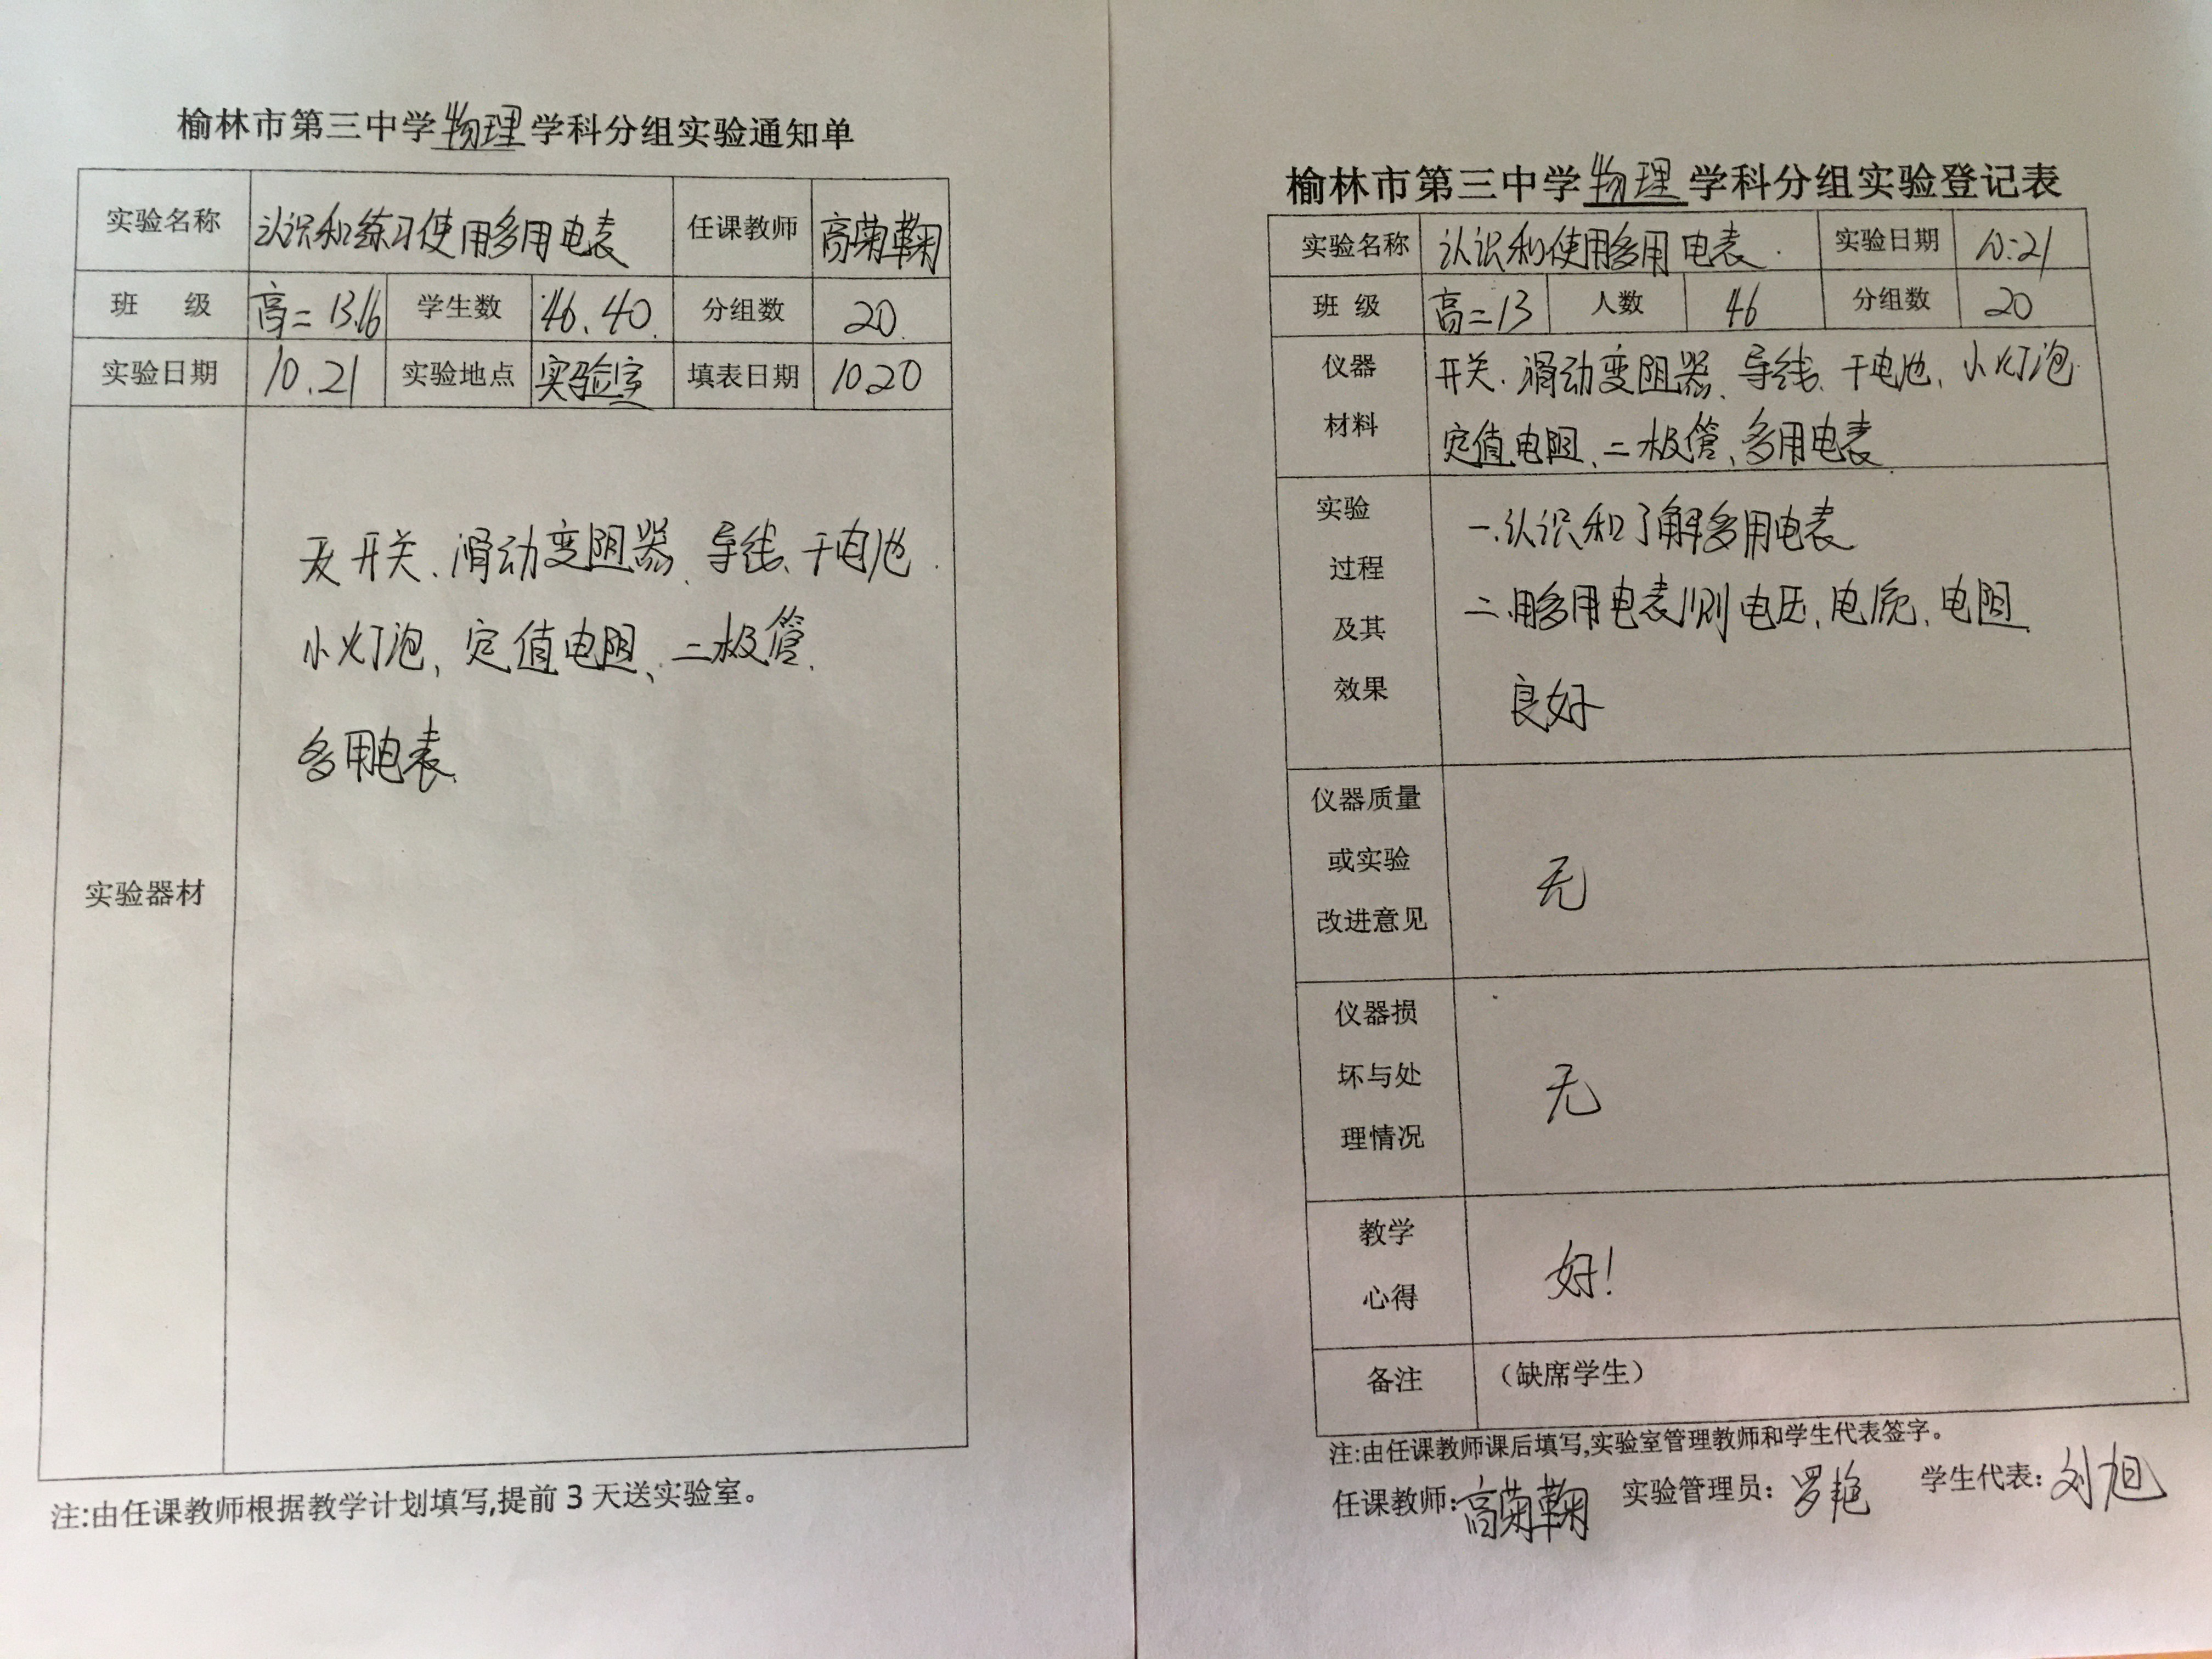 榆林市第三中学物理学科分组实验通知单
实验名称 认识和练习使用多用电表 任课教师 高菊鞠
班 级 高二13.16 学生数 46.40 分组数 20
实验日期 10.21 实验地点 实验室 填表日期 10.20
实验器材
开关、滑动变阻器、导线、干电池
小灯泡、定值电阻、二极管、
多用电表
注:由任课教师根据教学计划填写,提前3天送实验室。
榆林市第三中学物理学科分组实验登记表
实验名称 认识和使用多用电表. 实验日期 10:21
班 级 高二13 人数 46 分组数 20
仪器
材料
开关、滑动变阻器、导线、干电池、小灯泡
定值电阻、二极管、多用电表
实验
过程
及其
效果
一.认识和了解多用电表
二.用多用电表测电压、电流、电阻
良好
仪器质量
或实验
改进意见
无
仪器损
坏与处
理情况
无
教学
心得
好!
备注 (缺席学生)
注:由任课教师课后填写,实验室管理教师和学生代表签字。
任课教师:高菊鞠 实验管理员:罗艳 学生代表:刘旭